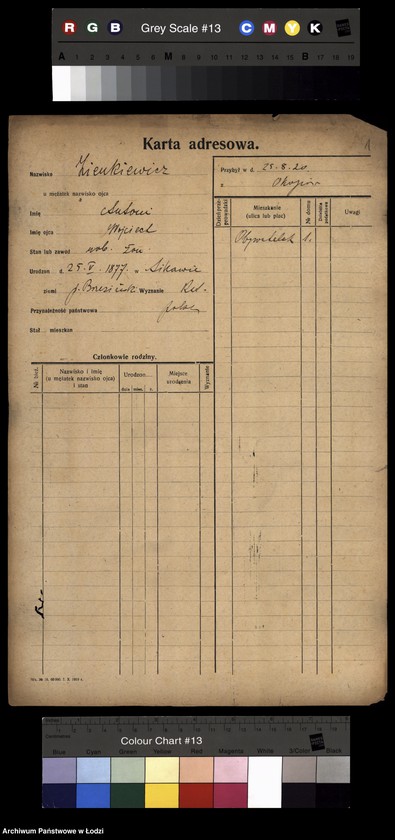 R G B Grey Scale #13 C M Y K
A 1 2 3 4 5 6 M 8 9 10 11 12 13 14 15 B 17 18 19
Karta adresowa.
1
Nazwisko Zienkiewicz
u mężatek nazwisko ojca
Imię Antoni
Imię ojca Wojciech
Stan lub zawód rob. żon.
Urodzon d. 25 V 1877. w Sikawie
ziemi p. Brzeziński Wyznanie
Przynależność państwowa polska
Stał. mieszkan.
Przybył w d. 25-8-20
z
Data wprowadz.
Mieszkanie
(ulica lub plac)
№ domu
Uwagi
Obywatelska 1.
Członkowie rodziny.
№ bież.
Nazwisko i imię
(u mężatek nazwisko ojca)
i stan
Urodzon.....
dnia mies. r.
Miejsce
urodzenia
Wyznanie
Colour Chart #13
Blue Cyan Green Yellow Red Magenta White 3/Color Black
Archiwum Państwowe w Łodzi